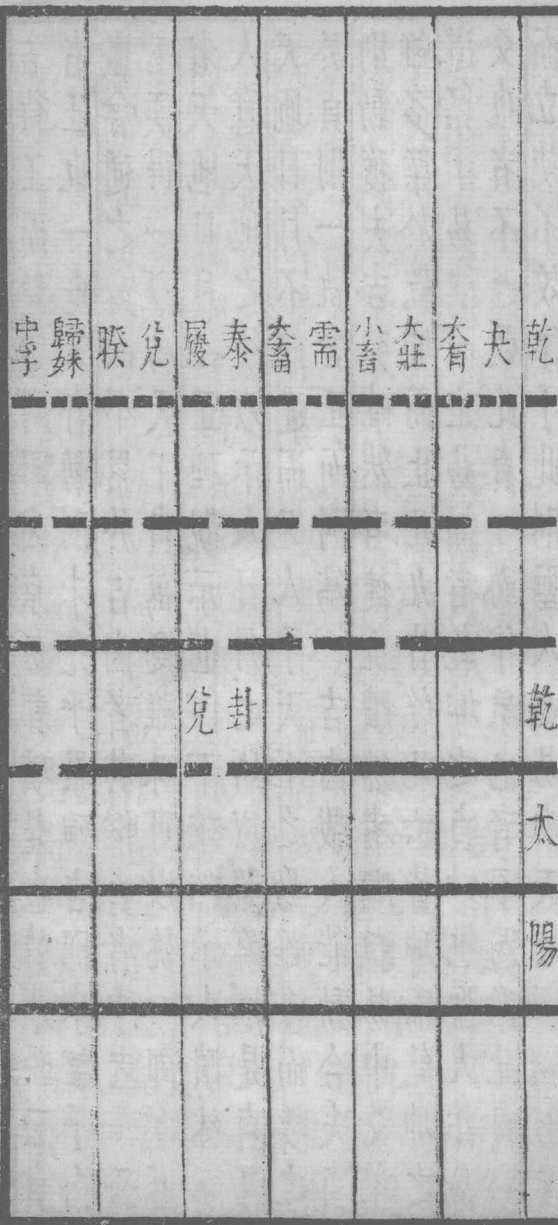 乾
夬
大有
大壯
小畜
需
大畜
泰
履
兌
睽
歸妹
中孚
乾
封
兌
太
陽